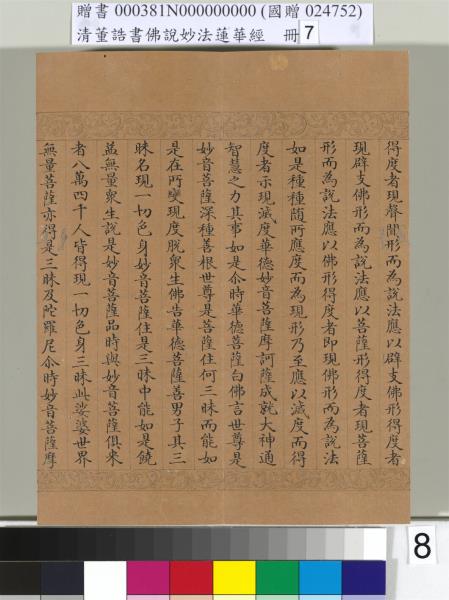 贈書 000381N000000000 (國贈 024752)
清董誥書佛說妙法蓮華經 冊 7
得度者現聲聞形而為說法應以辟支佛形得度者
現辟支佛形而為說法應以菩薩形得度者現菩薩
形而為說法應以佛形得度者即現佛形而為說法
如是種種隨所應度而為現形乃至應以滅度而得
度者示現滅度華德妙音菩薩摩訶薩成就大神通
智慧之力其事如是尒時華德菩薩白佛言世尊是
妙音菩薩深種善根世尊是菩薩住何三昧而能如
是在所變現度脫眾生佛告華德菩薩善男子其三
昧名現一切色身妙音菩薩住是三昧中能如是饒
益無量眾生說是妙音菩薩品時與妙音菩薩俱來
者八萬四千人皆得現一切色身三昧此娑婆世界
無量菩薩亦得是三昧及陀羅尼尒時妙音菩薩摩
8